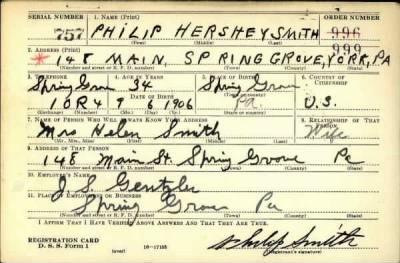 SERIAL NUMBER 1. NAME (Print) ORDER NUMBER
757 PHILIP HERSHEY SMITH 996
(First) (Middle) (Last) 999
2. ADDRESS (Print)
* 148 MAIN, SPRING GROVE, YORK, PA
(Number and street or R. F. D. number) (Town) (County) (State)
3. TELEPHONE 4. AGE IN YEARS 5. PLACE OF BIRTH 6. COUNTRY OF CITIZENSHIP
Spring Grove 34 Spring Grove
DATE OF BIRTH Pa. U.S.
10R4 9 6 1906
7. NAME OF PERSON WHO WILL ALWAYS KNOW YOUR ADDRESS 8. RELATIONSHIP OF THAT PERSON
Mrs Helen Smith Wife
(Mr., Mrs., Miss) (First) (Middle) (Last)
9. ADDRESS OF THAT PERSON
148 Main St. Spring Grove Pa
(Number and street or R. F. D. number) (Town) (County) (State)
10. EMPLOYER'S NAME
J. S. Gentzler
11. PLACE OF EMPLOYMENT OR BUSINESS
Spring Grove Pa
(Number and street or R. F. D. number) (Town) (County) (State)
I AFFIRM THAT I HAVE VERIFIED ABOVE ANSWERS AND THAT THEY ARE TRUE.
REGISTRATION CARD
D. S. S. Form 1 (over) 16—17105 Philip Smith
(Registrant's signature)